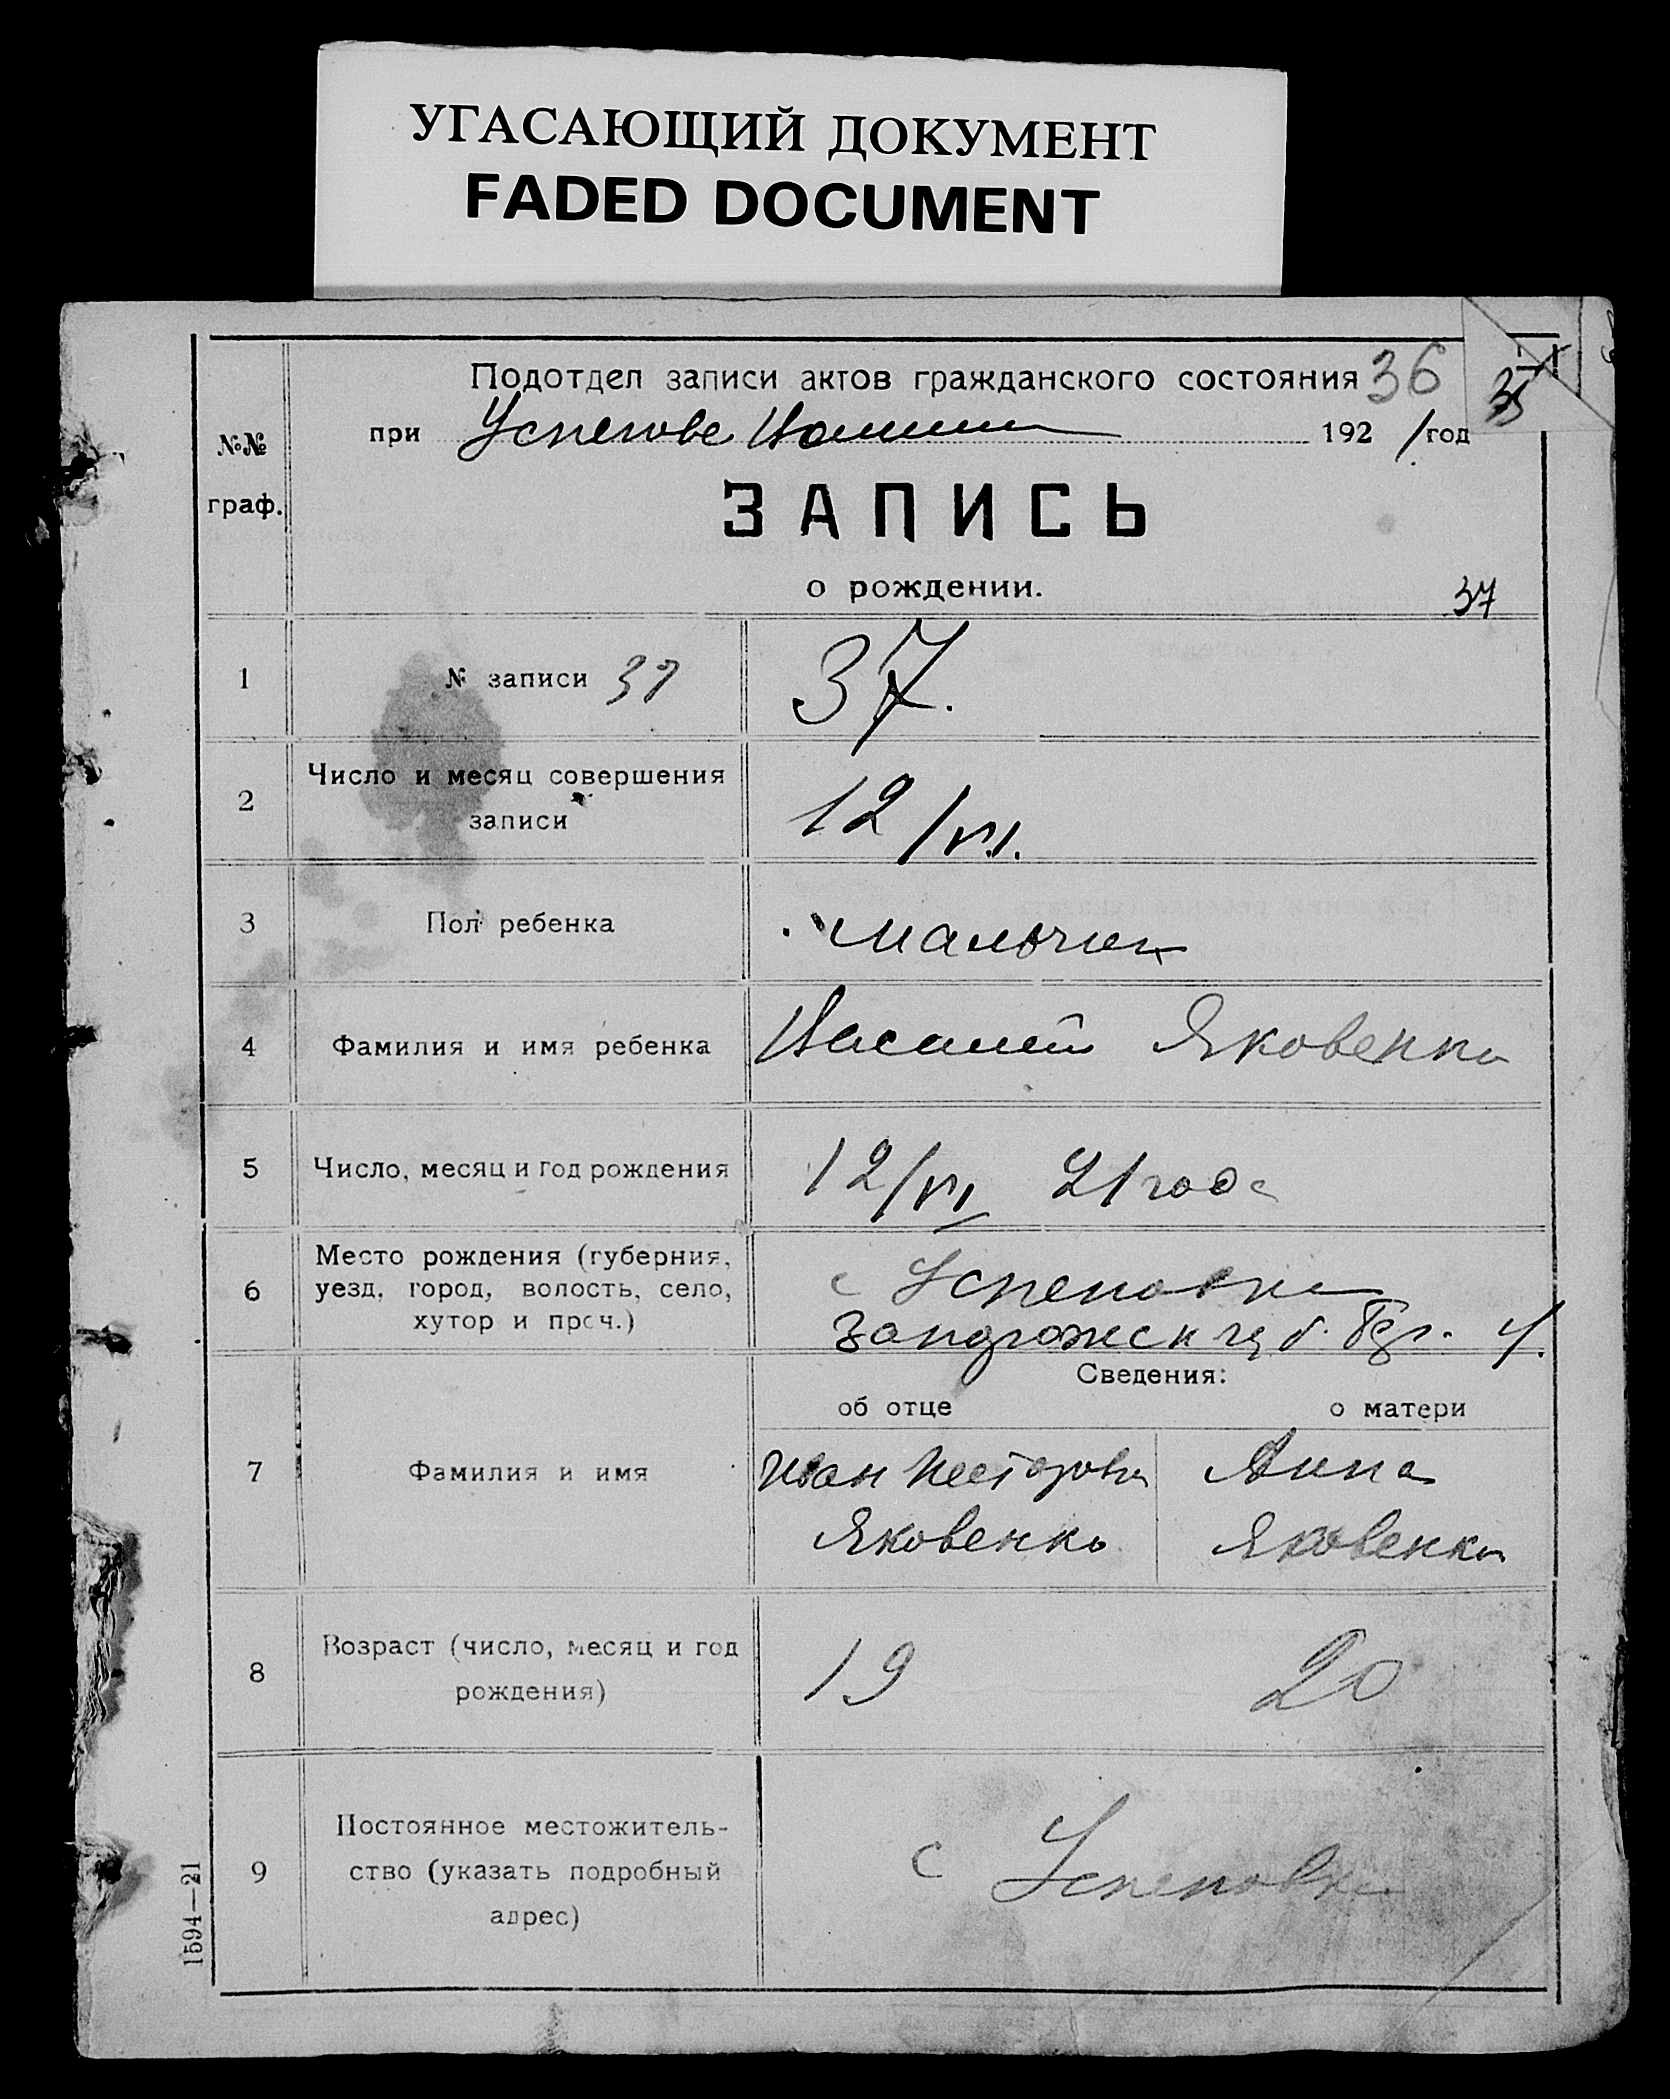 УГАСАЮЩИЙ ДОКУМЕНТ
FADED DOCUMENT
Подотдел записи актов гражданского состояния 36
35
№№
граф.
при 1921 год
ЗАПИСЬ
о рождении.
37
1 № записи 37 37.
2 Число и месяц совершения
записи
12/VI.
3 Пол ребенка мальчик
4 Фамилия и имя ребенка Василий Яковенко
5 Число, месяц и год рождения 12/VI 21 года
6 Место рождения (губерния,
уезд, город, волость, село,
хутор и проч.)
с Успеновка
Запорожск губ.
Сведения:
об отце о матери
7 Фамилия и имя
Иван Несторович Анна
Яковенко Яковенко
8 Возраст (число, месяц и год
рождения)
19 20
9 Постоянное местожитель-
ство (указать подробный
адрес)
с Успеновка
1594—21